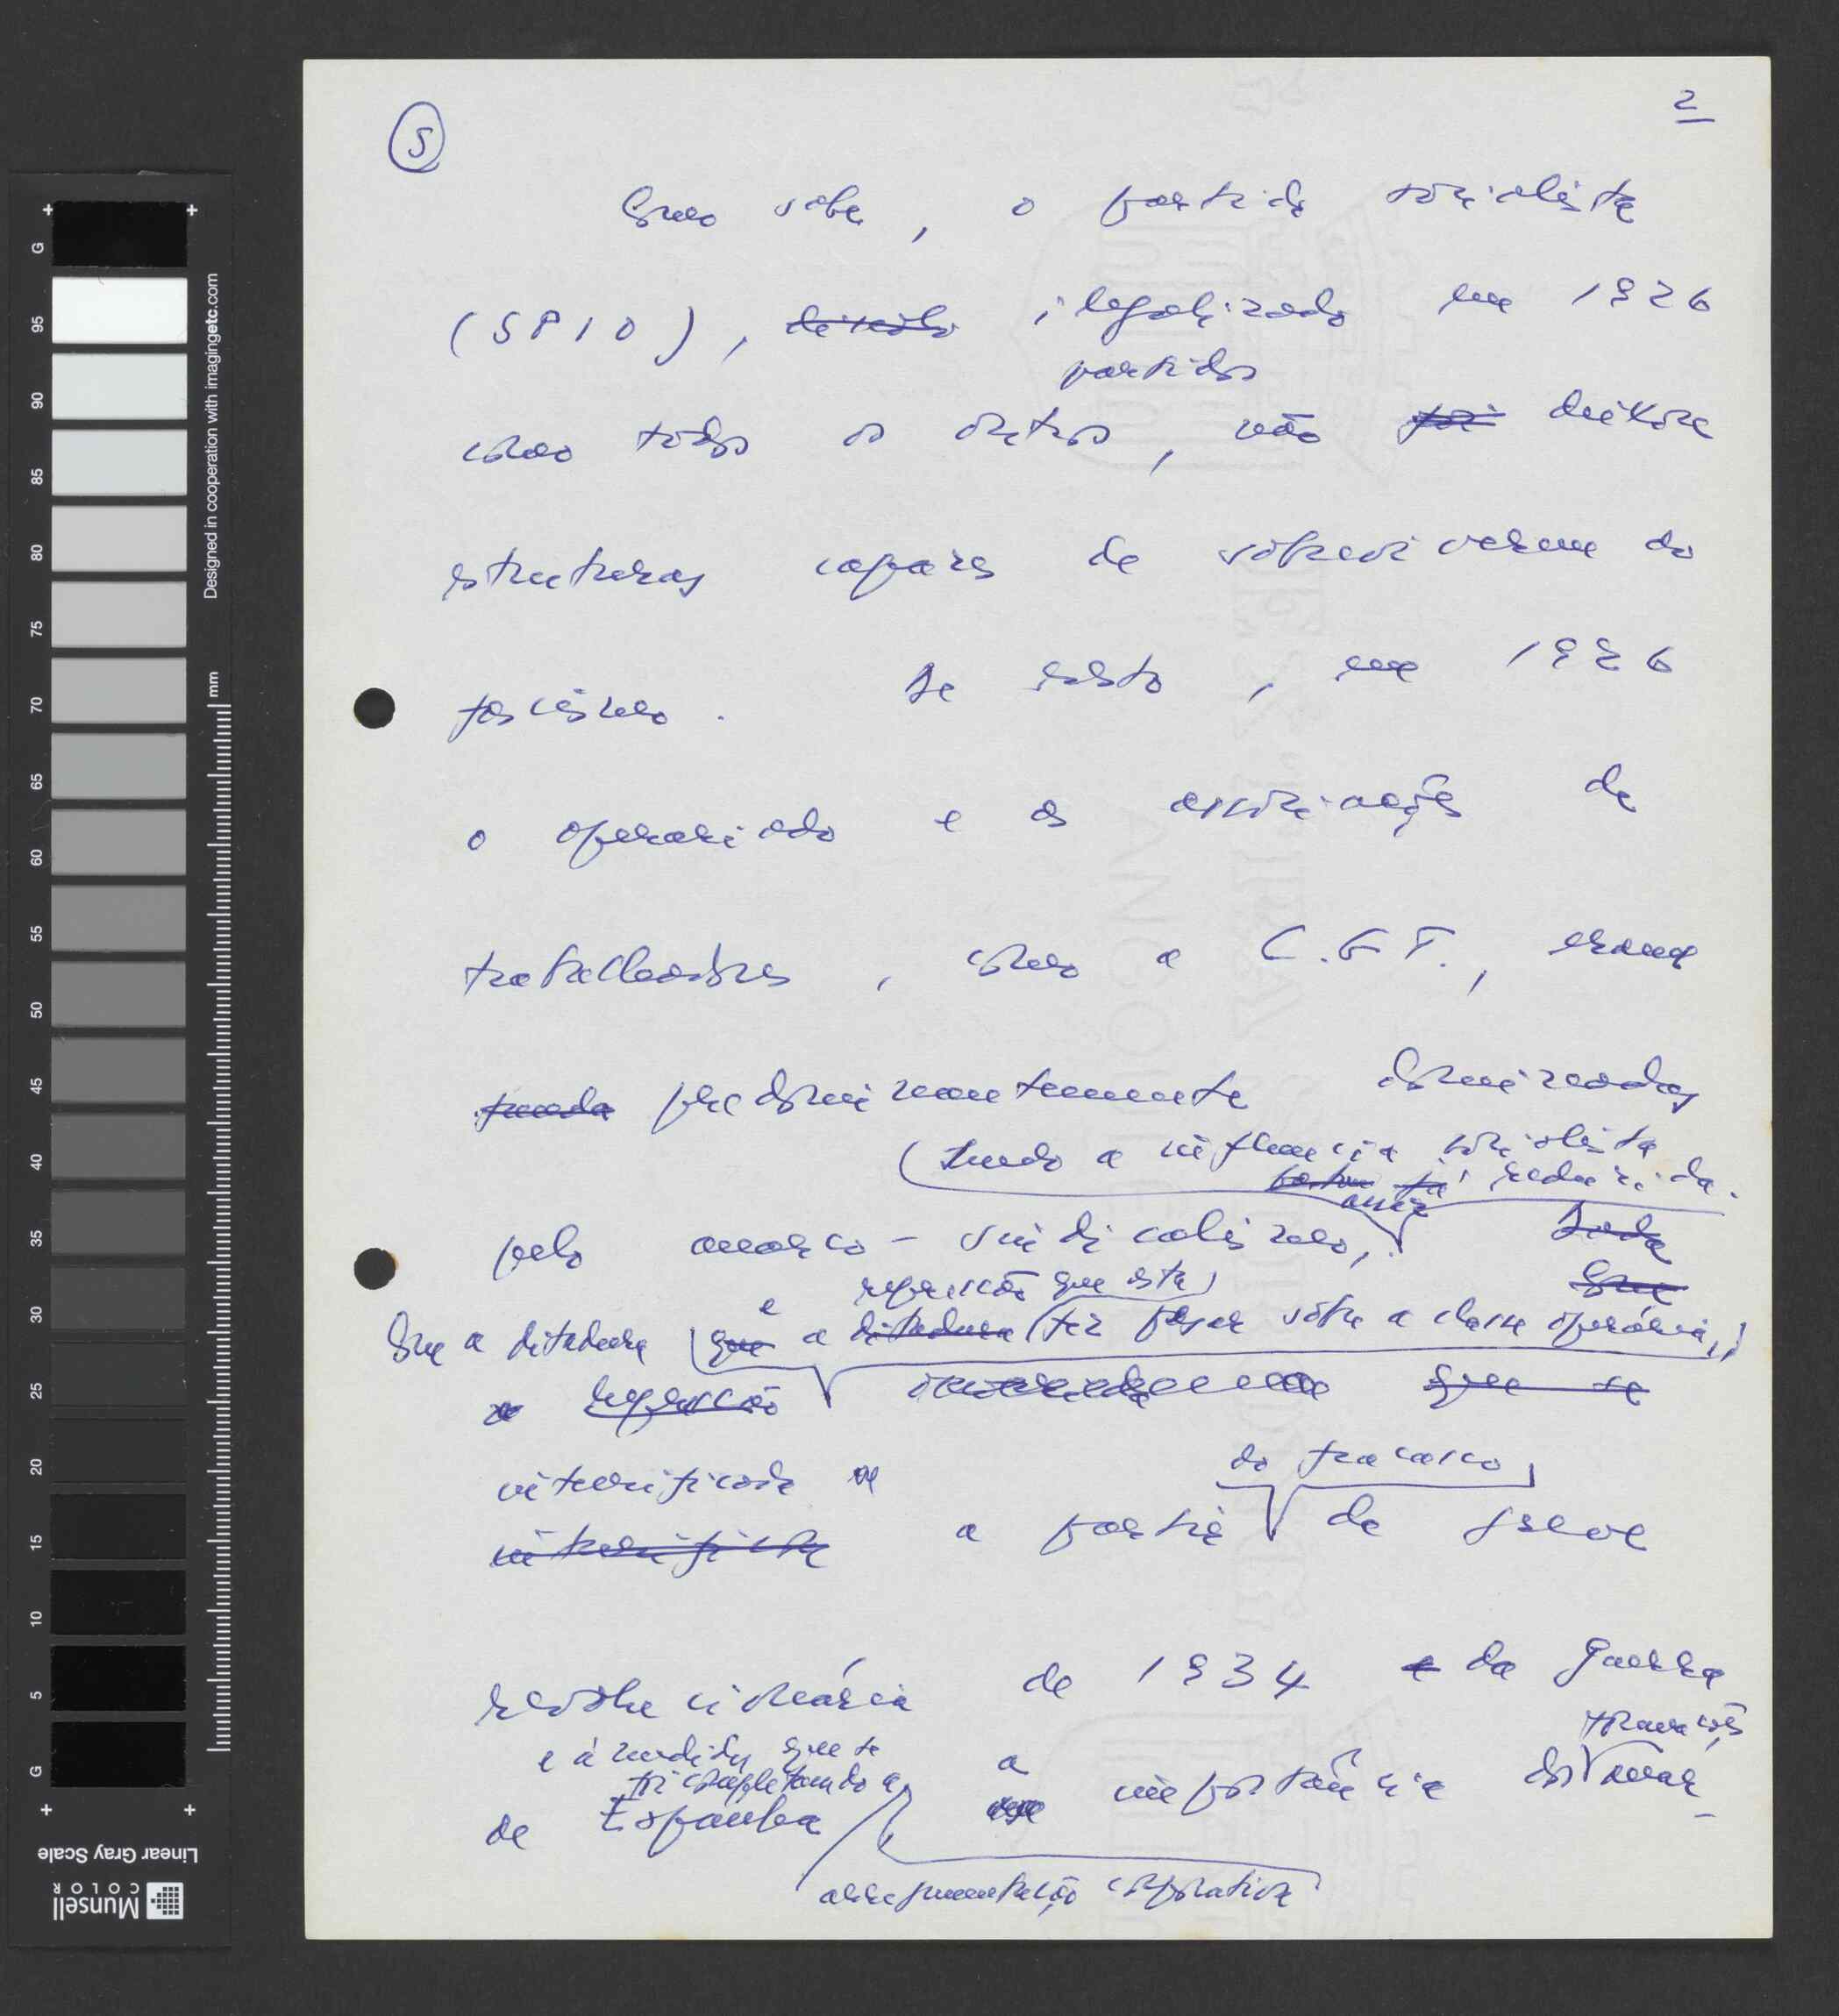 5
2
Como sabe, o partido socialista
(SPIO), ilegalizado em 1926
partidos
como todos os outros, não foi deixou
estruturas capazes de sobreviverem ao
fascismo. De resto, em 1926
o operariado e as associações de
trabalhadores, como a C.G.T., eram
predominantemente dominadas
(sendo a influência socialista
reduzida.
pelo anarco-sindicalismo,
Toda
Que
e repressão que esta
Que a ditadura que a ditadura fez pesar sobre a classe operária,
a repressão que se
do fracasso
intensificada
intensificada a partir da greve
revolucionária de 1934 e da guerra
formações
e à medida que se
foi completando a
de Espanha a importância dos anar-
arregimentação corporativa
Designed in cooperation with imagingetc.com
mm
G
95
90
85
80
75
70
65
60
55
50
45
40
35
30
25
20
15
10
5
G
Linear Gray Scale
Munsell
COLOR